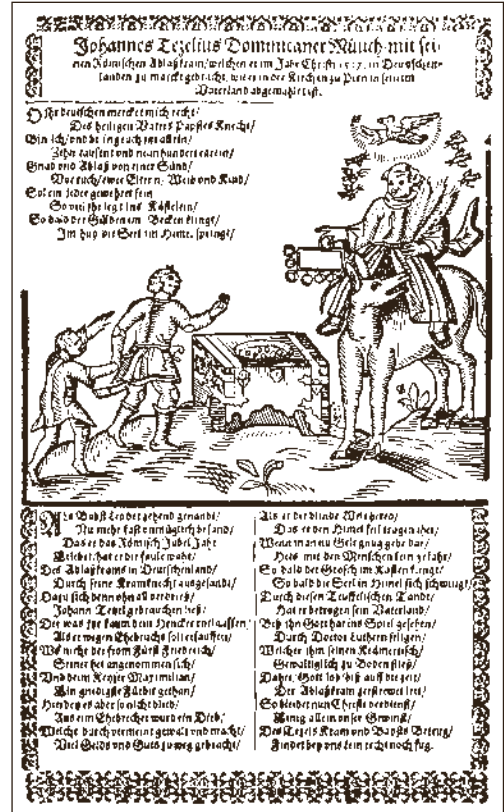 Johannes Tezelius Dominicaner Münch/mit sei-
nen Römischen Ablaßkram/welchen er im Jahr Christi 1517. in Deutschen-
landen zu marckt gebracht/wie er in der Kirchen zu Pirn in seinem
Vaterland abgemahlet ist.
O Ihr deutschen mercket mich recht/
Des heiligen Vaters Papstes Knecht/
Bin ich/und
Zehn tausent und neun hundert
Gnad und Ablaß von einer Sünd/
Vor euch/ewer Eltern/Weib und Kind/
Sol ein jeder gewehret sein
So viel ihr legt ins Kästelein/
So bald der Gülden im Becken klingt/
Im huy die Seel im Himel springt/
Als Babst Leo der zehend genandt/
Nu mehr fast unmüglich befand/
Das er das Römisch Jubel Jahr
Erlebet/hat er die
Des Ablaßkrams in Deutschenland/
Durch seine Kramknecht ausgesandt/
Dazu sich denn ohn all verdrieß/
Johann Tetzel gebrauchen ließ/
Der was
Als er wegen Ehebruchs solt ersäuffen/
Wo nicht der from Fürst Friederich/
Seiner het angenommen sich/
Und beim Keyser Maximilian/
Ein gnedigste Fürbit gethan/
Hierbey es aber so nicht blieb/
Aus eim Ehebrecher wurd ein Dieb/
Welche durch vermeint gewalt und macht/
Viel Gelds und Guts zu weg gebracht/
Als er die blinde Welt
Das er den Himel feil tragen thet/
Wenn man nu Geld gnug gebe dar/
Hets mit den Menschen kein gefahr/
So bald der Grosch im Kasten klingt/
So bald die Seel in Himel sich schwingt/
Durch diesen Teuffelischen Tandt/
Hat er betrogen sein Vaterland/
Biß ihn Gott hat ins Spiel gesehen/
Durch Doctor Luthern seligen/
Welcher ihm seinen Krämertisch/
Gewaltiglich zu Boden
Daher/Gott lob/biß auff die zeit/
Der Ablaßkram zerstrewet leit/
So bleibet nun Christi verdienst/
Einig allein unser Gewinst/
Des Tezels Kram und Babsts Betrug/
Findet bey uns kein recht noch fug.